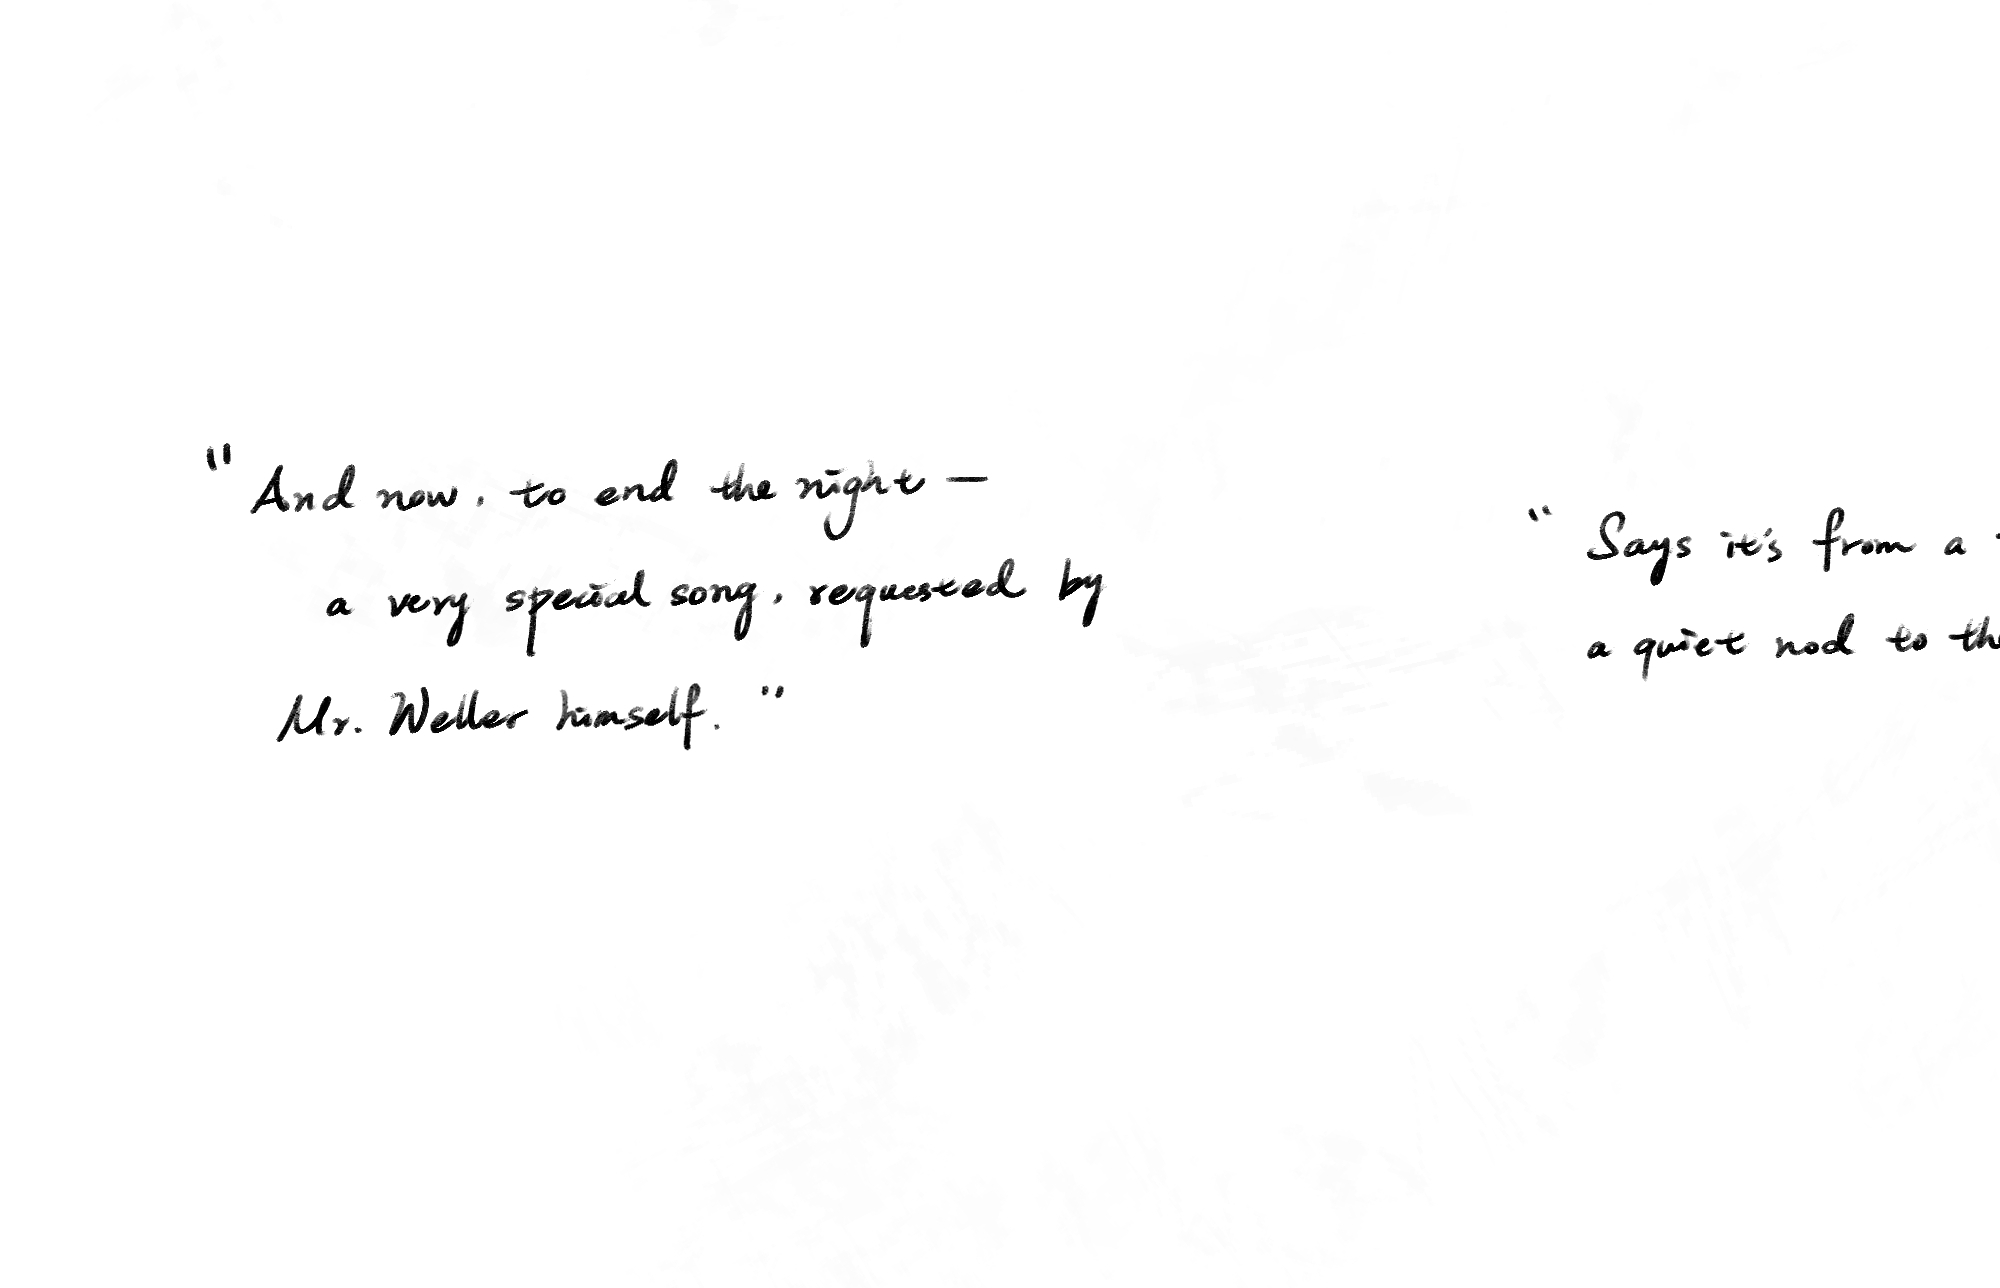 "And now, to end the night —
a very special song, requested by
Mr. Weller himself."
"Says it's from a
a quiet nod to